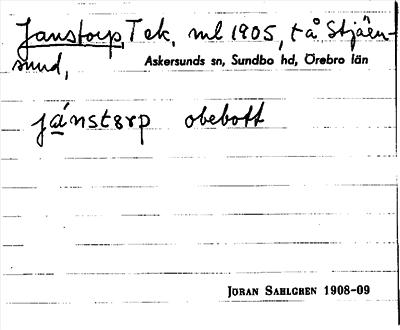 Janstorp, T ek, ml 1905, t å Stjärn-
sund, Askersunds sn, Sundbo hd, Örebro län
jánstɵrp obebott
JÖRAN SAHLGREN 1908-09